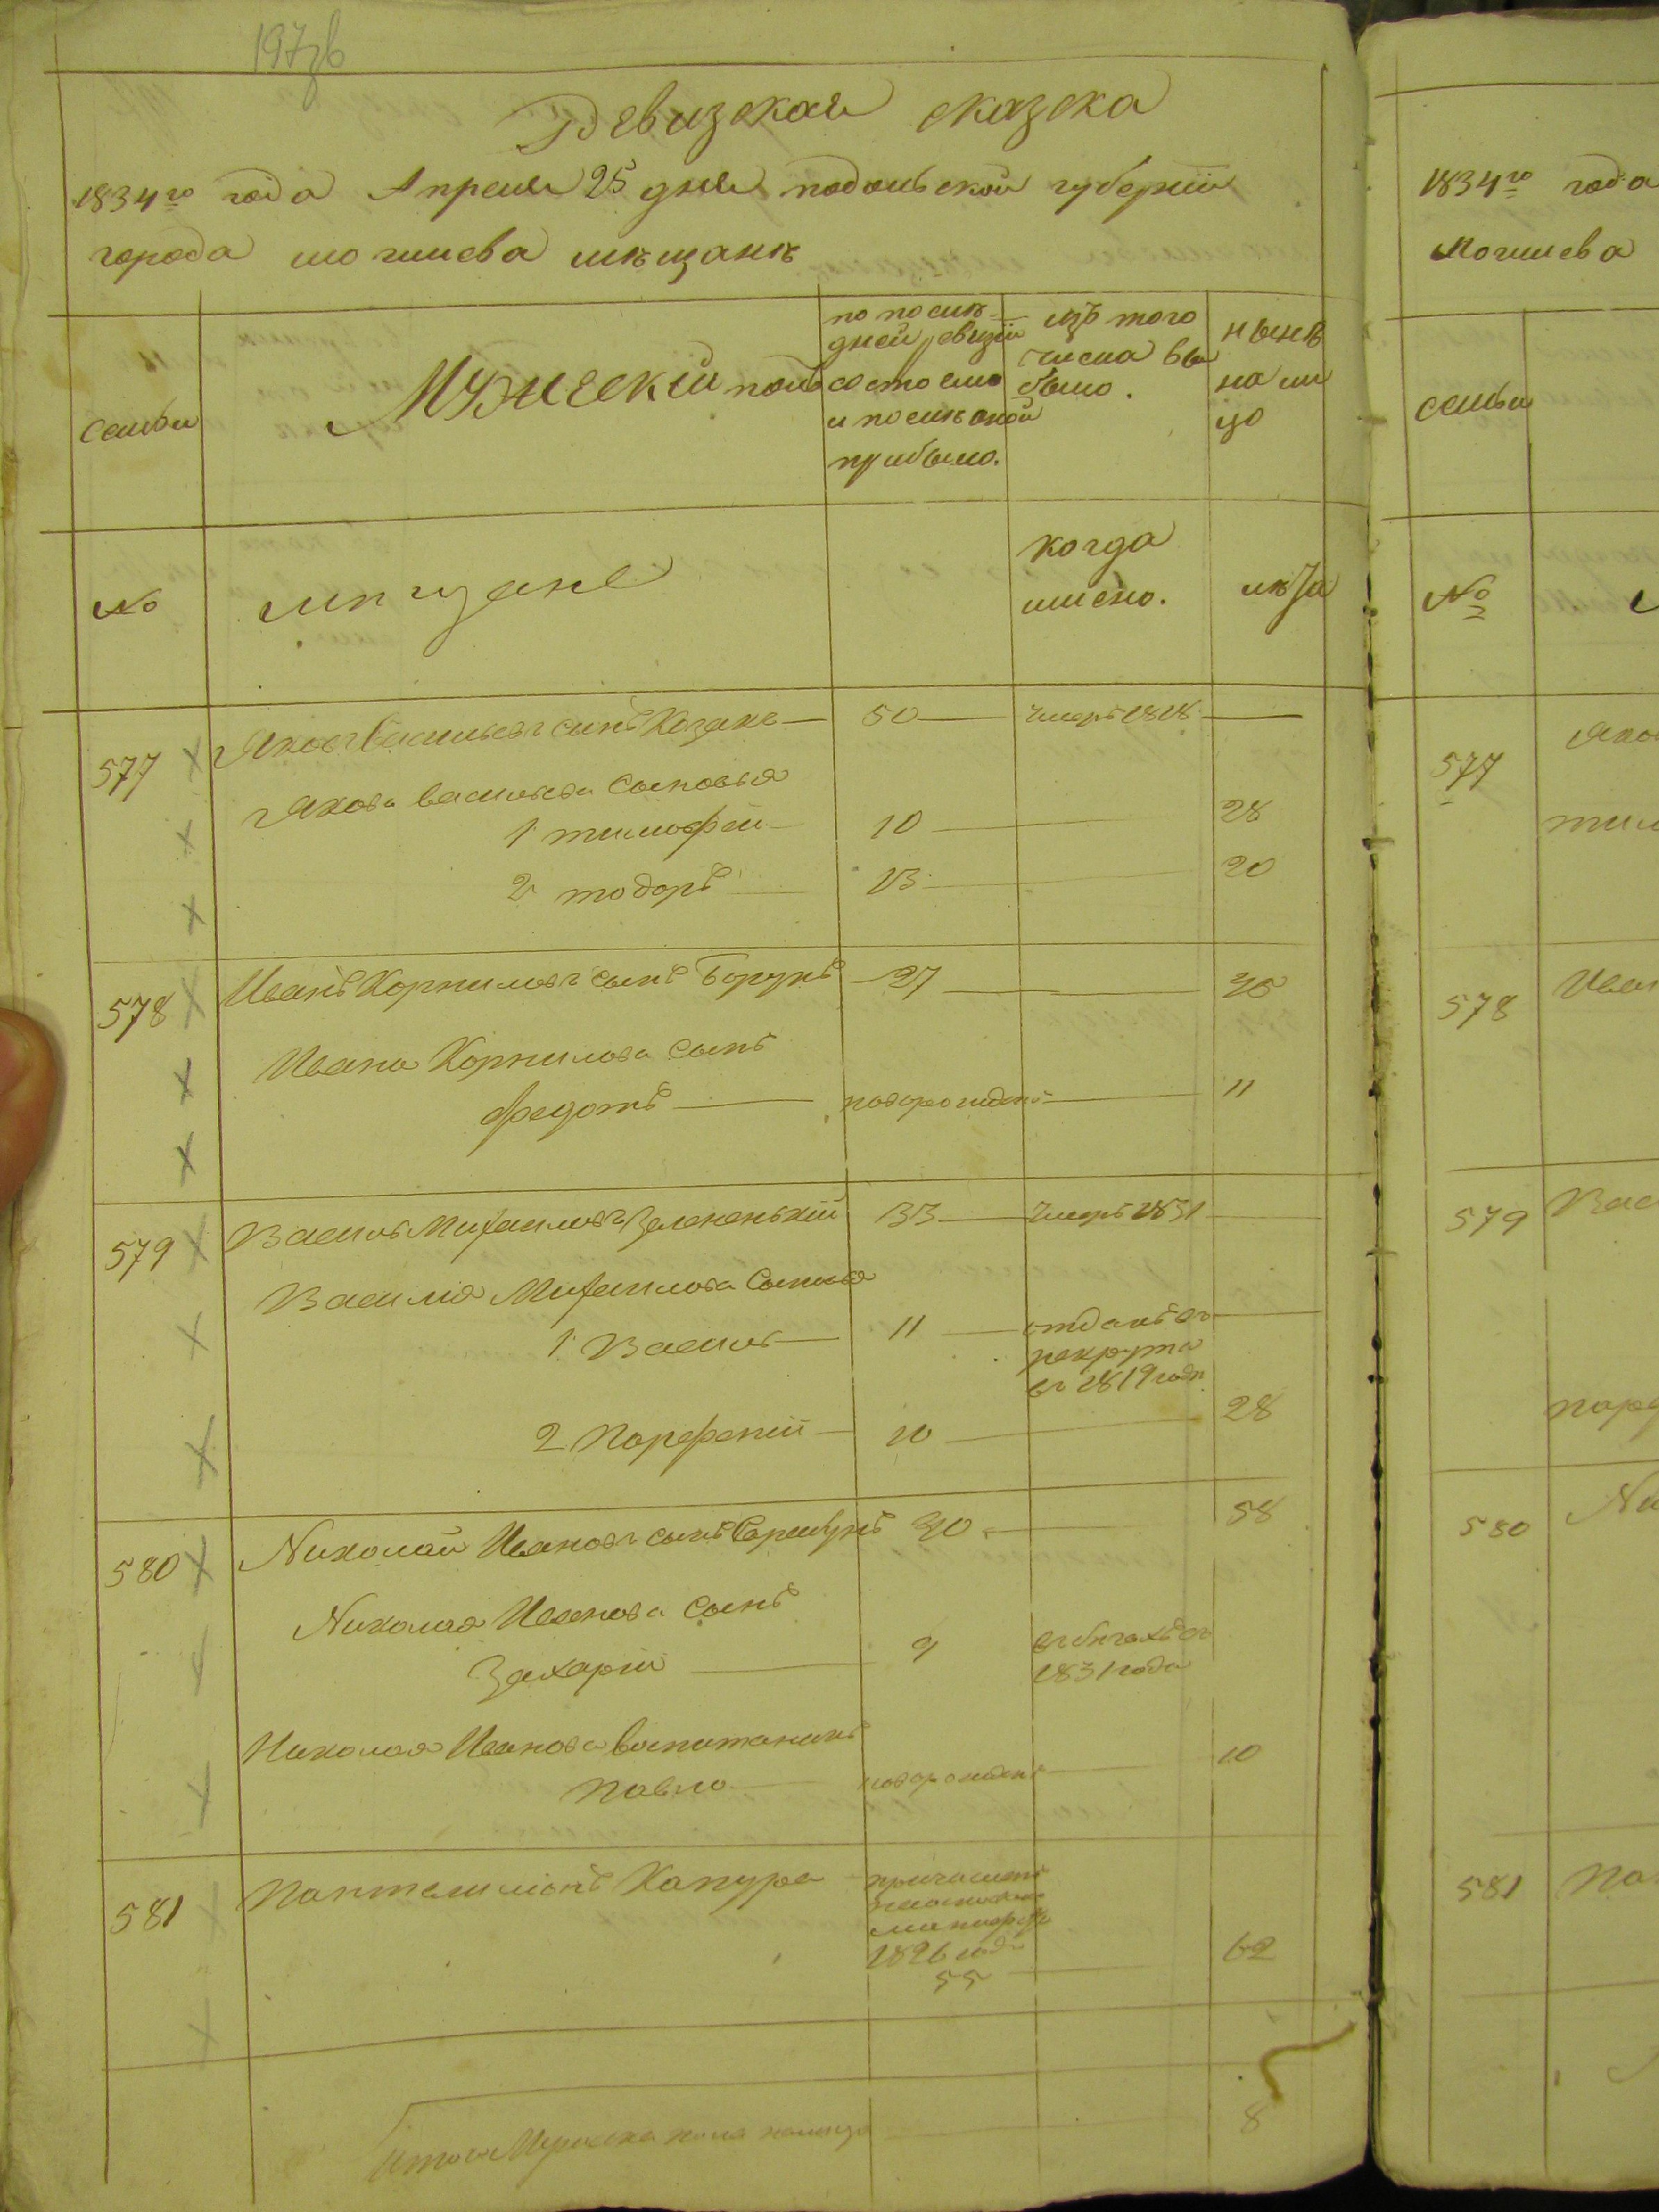 197зв
Ревизская сказка
1834го года Апреля 25 дня подольской губернии
города могилева мѣщанъ
семьи
Мужеский полъ
по послѣ-
дней ревизіи
состояло
и послѣ оной
прибыло.
изъ того
числа вы
было.
нынѣ
на ли
цо
№
мѣщане
когда
имено.
лѣта
577 Яковъ Васильевъ сынъ Козакъ 50 умеръ 1818
Якова васильева сыновья
1 тимофей 10 28
2 тодоръ 13 20
578 Иванъ Корниловъ сынъ 27
Ивана Корнилова сынъ
Федотъ новорожденъ 11
579 Василь Михайловъ Зелененький 33 умеръ 1831
Василия Михайлова Сыновья
1 Василь 11 отданъ въ
рекруты
въ 1819 годе
2 Парфений 10 28
580 Николай Ивановъ сынъ 40 58
Николая Иванова сынъ
Захарий 9 въ бегахъ съ
1831 года
Николая Иванова воспитаникъ
Павло новорожденъ 10
581 Пантелимонъ Капура причисленъ
1826 года
55 62
Итого Мужеска пола налицо 8
1834го года
Могилева
семьи
№
577 Яко
тим
578 Иван
579 Вас
парф
580 Ни
581 Пан